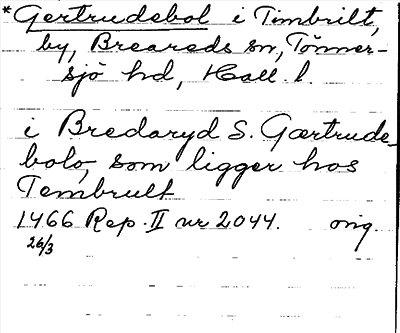 *Gertrudebol i Timbrilt,
by, Breareds sn, Tönner-
sjö hd, Hall. l.
i Bredaryd S. Gærtrude-
bolo, som ligger hos
Tembrult
1466 Rep. II nr 2044. orig.
26/3